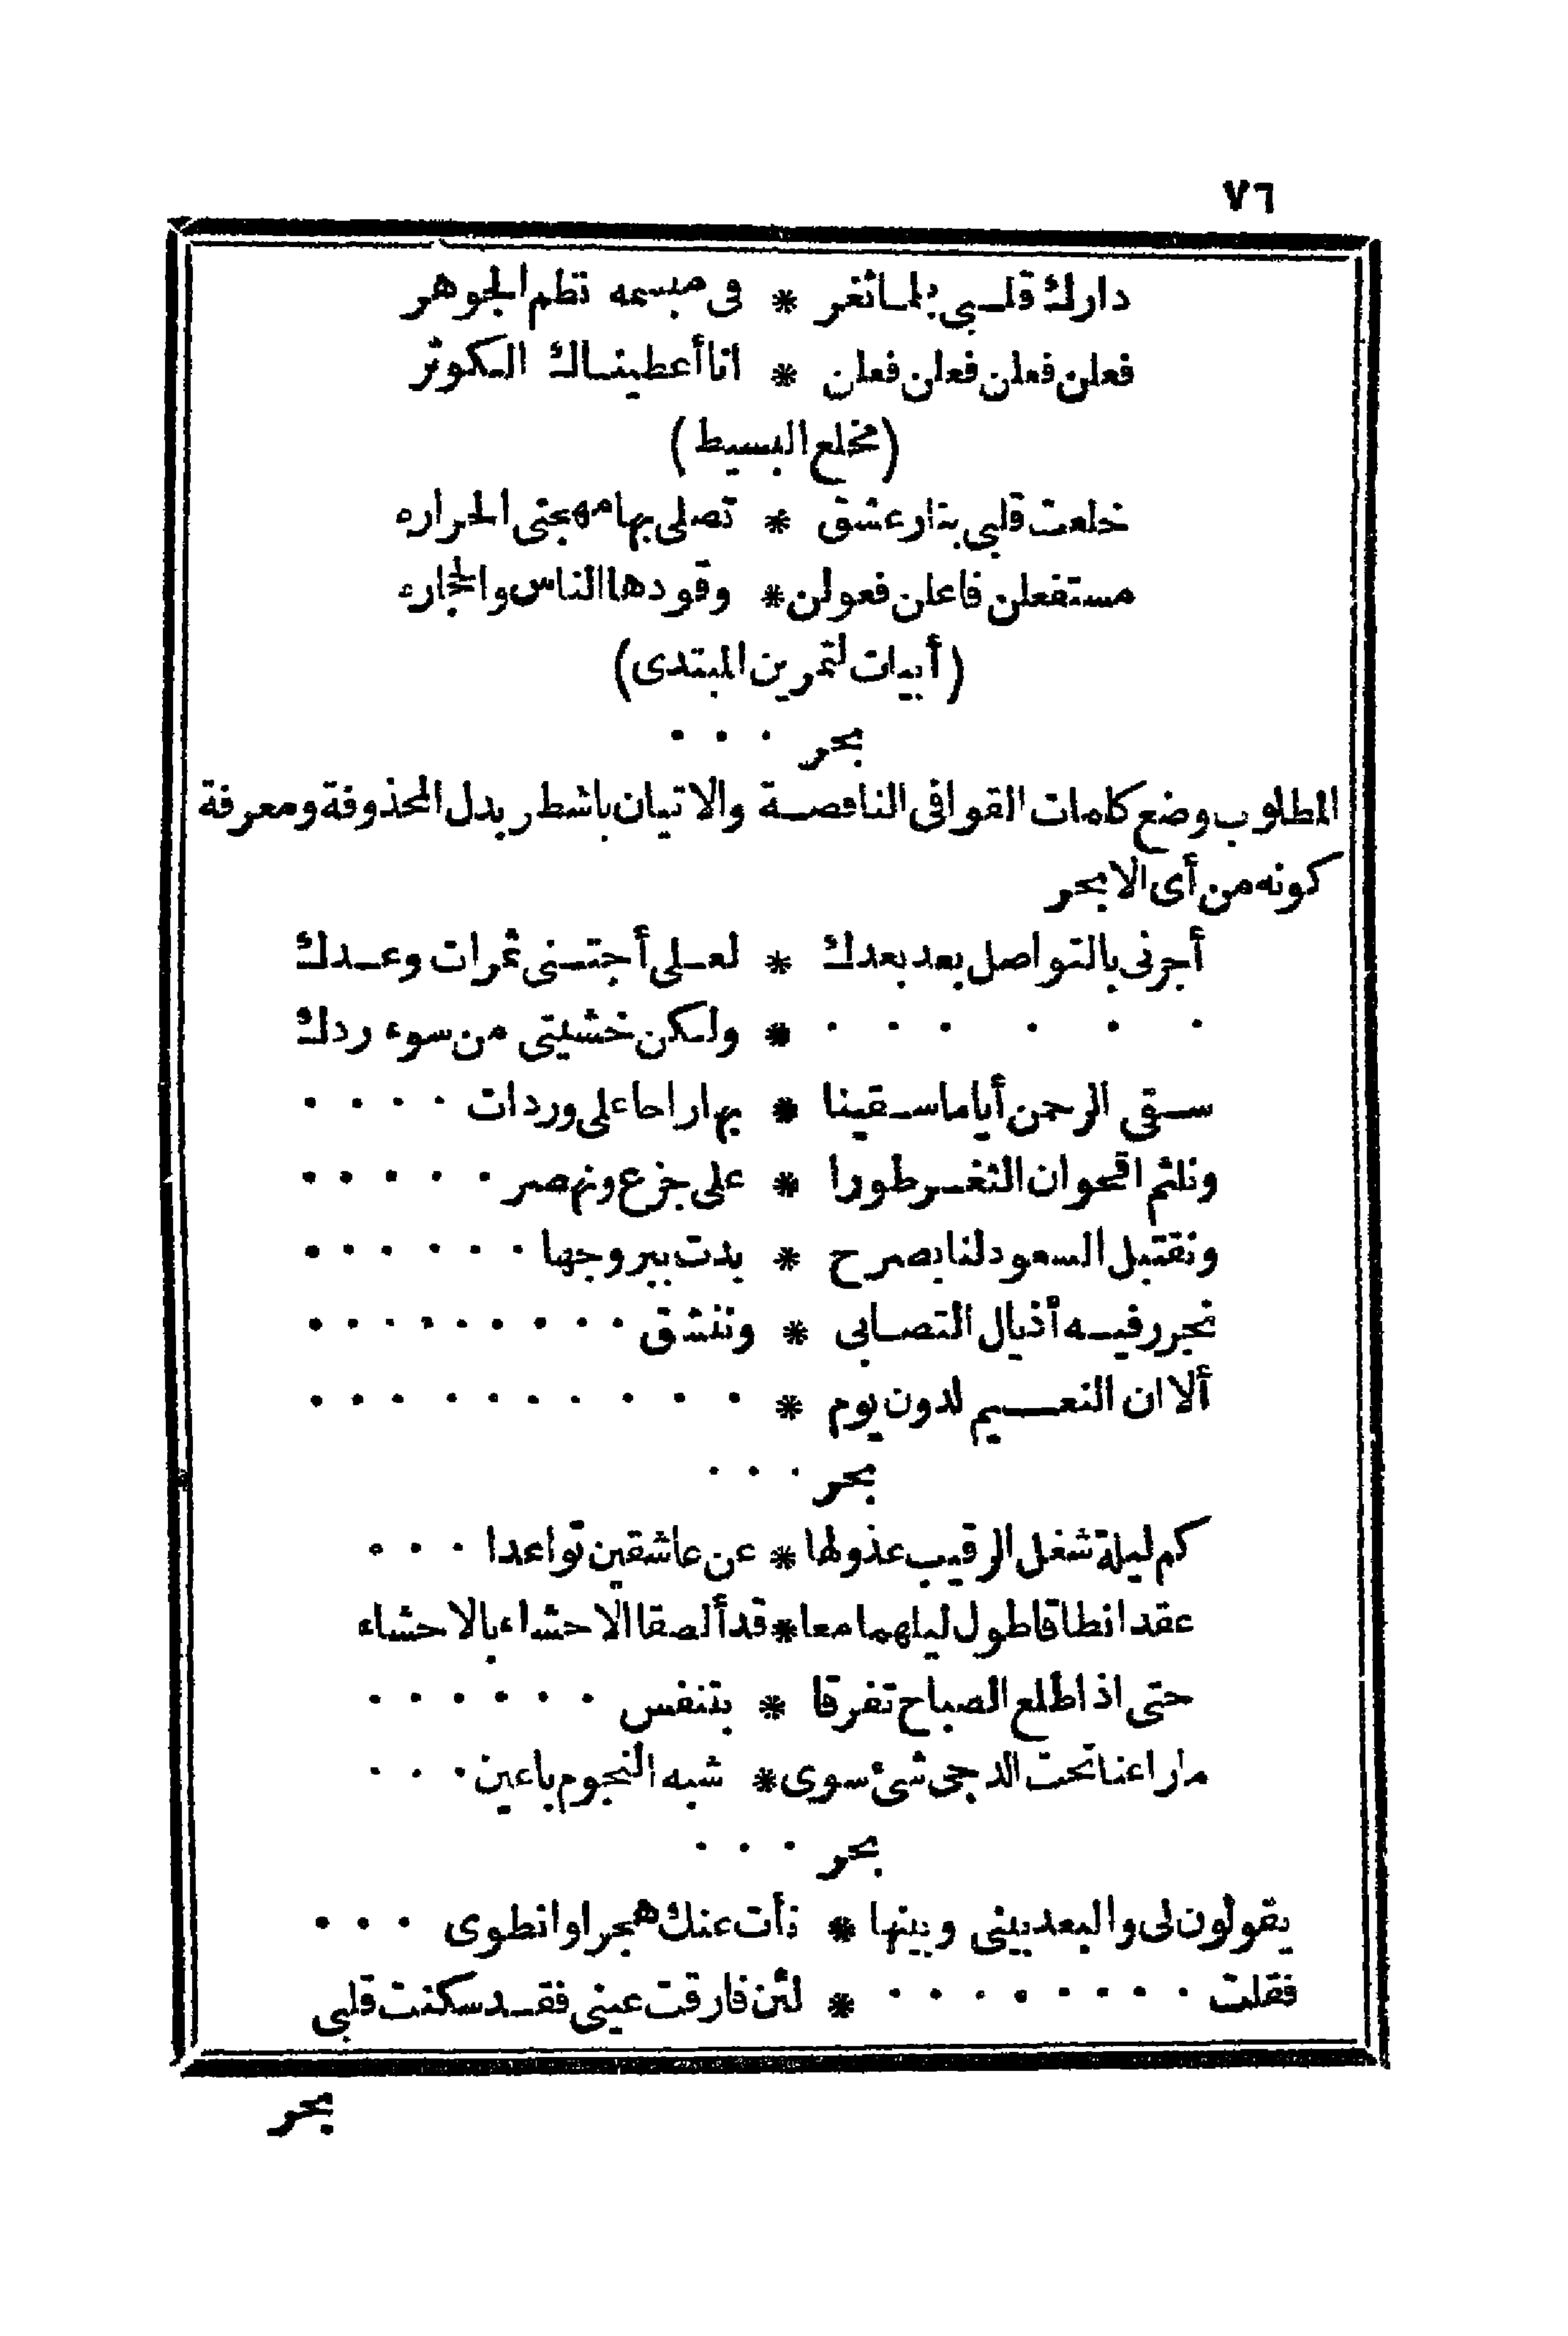 ٧٦
دارك قلبى بلمى ثغر * فى مبسمه نظم الجوهر
فعلن فعلن فعلن فعلن * انا أعطيناك الكوثر
(مخلع البسيط)
خلعت قلبى بنار عشق * تصلى بها مهجتى الحراره
مستفعلن فاعلن فعولن * وقودها الناس والحجاره
(أبيات لتمرين المبتدى)
بحر . . .
المطلوب وضع كلمات القوافى الناقصة والاتيان باشطر بدل المحذوفة ومعرفة
كونه من أى الابحر
أجرنى بالتواصل بعد بعدك * لعلى أجتنى ثمرات وعدك
. . . . . . * ولكن خشيتى من سوء ردك
سقى الرحمن أياما سقينا * بها راحا على وردات . . . .
ونلثم اقحوان الثغر طورا * على جزع ونهصر . . . . .
ونقتبل السعود لنا بصرح * بدت ببروجها . . . . . .
نجرر فيه أذيال التصابى * وننشق . . . . . . . . .
ألا ان النعيم لدون يوم * . . . . . . . . . .
بحر . . .
كم ليلة شغل الرقيب عذولها * عن عاشقين تواعدا . . .
عقدا نطاقا طول ليلهما معا * قد ألصقا الاحشاء بالاحشاء
حتى اذا طلع الصباح تفرقا * بتنفس . . . . . .
ما راعنا تحت الدجى شئ سوى * شبه النجوم باعين . . .
بحر . . .
يقولون لى والبعد بينى وبينها * نأت عنك هجرا وانطوى . . .
فقلت . . . . . . . . * لئن فارقت عينى فقد سكنت قلبى
بحر